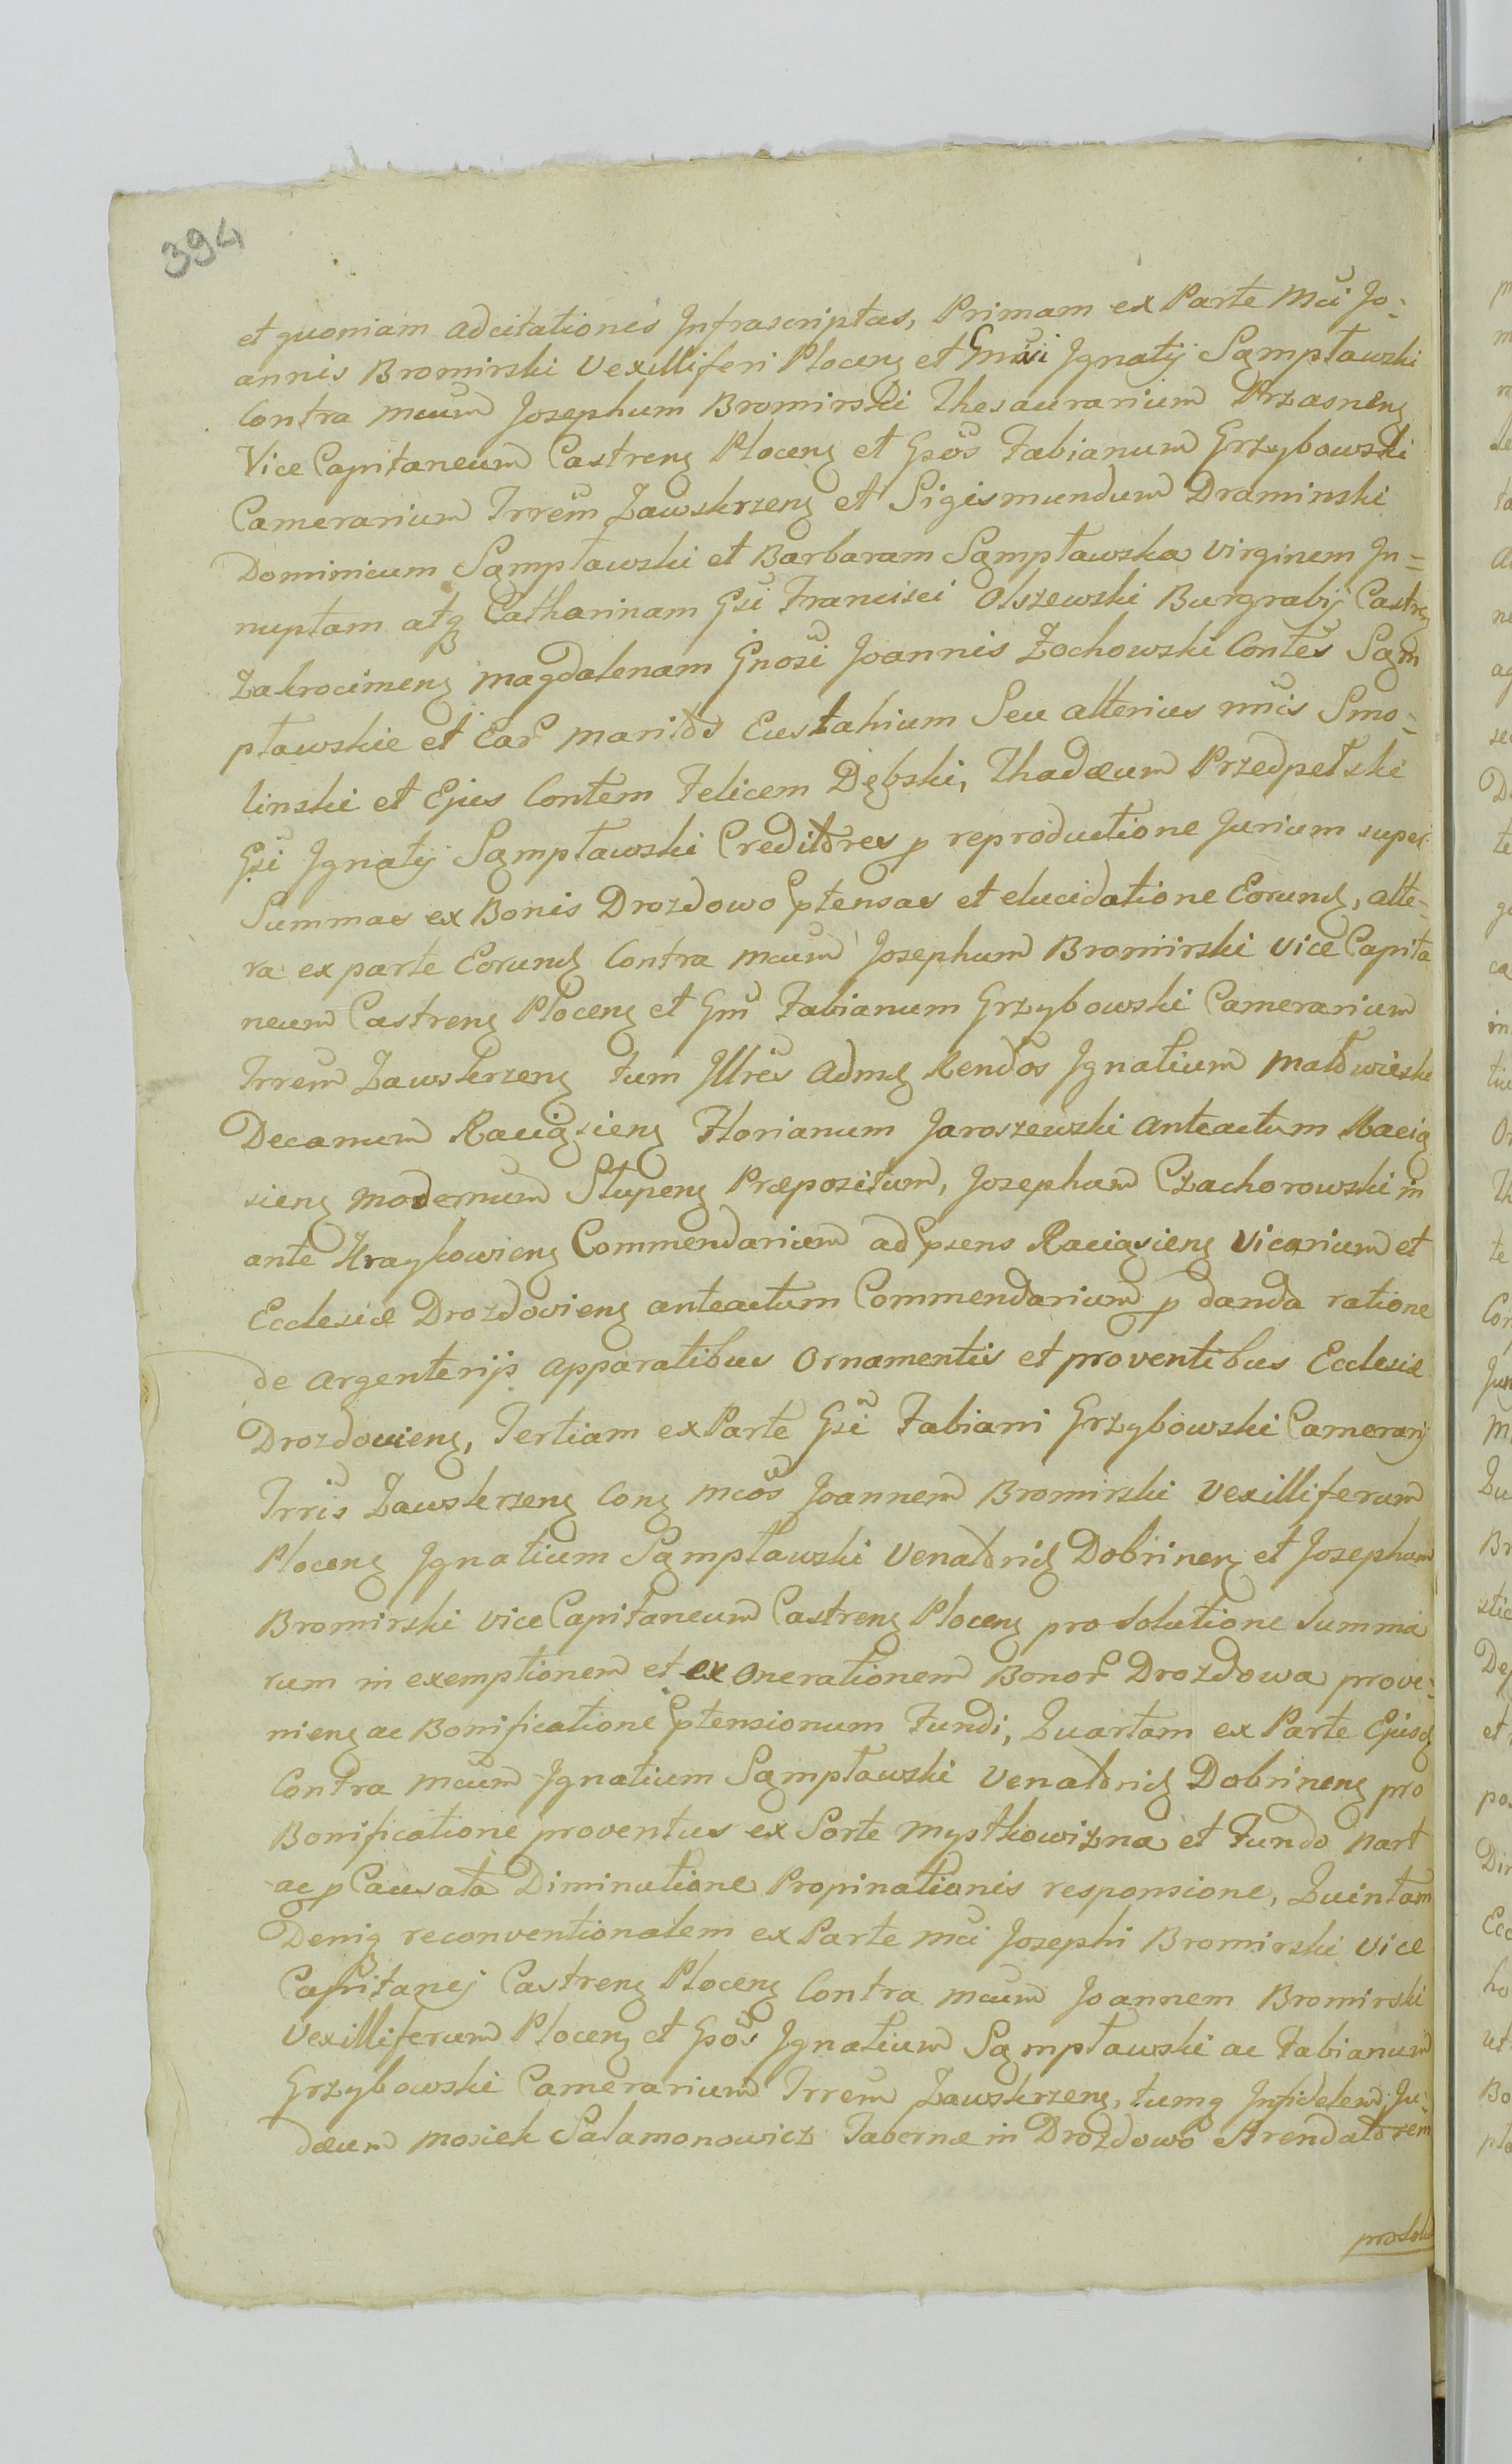 394
et quoniam adcitationes Infrascriptas, Primam ex Parte Mci Jo-
annis Bromirski Vexilliferi Plocenq et Gnosi Ignatij Sąmpławski
Contra Mcum Josephum Bromirski Thesaurarium Przasnenq
Vice Capitaneum Castrenq Plocenq et Gsos Fabianum Grzybowski
Camerarium Trrem Zawskrzenq et Sigismundum Draminski
Dominicum Sąmpławski et Barbaram Sąmpławska Virginem In-
nuptam atq Catharinam Gsi Francisci Olszewski Burgrabij Castrenq
Zakrocimenq Magdalenam Gnosi Joannis Zochowski Contes Sąm
pławskie et Ear maritos Eustahium Seu alterius nnis Smo-
linski et Ejus Contem Felicem Dębski, Thadæum Przedpełski
Gsi Ignatij Sąmpławski Creditores p reproductione Jurium super
Summas ex Bonis Drozdowo Ptensas et elucidatione Eorund, alte-
ra ex parte Eorund Contra Mcum Josephum Bromirski Vice Capita
neum Castrenq Plocenq et Gm Fabianum Grzybowski Camerarium
Trrem Zawskrzenq tum Illres Admd Rendos Ignatium Małowieski
Decanum Raciąsienq Florianum Jaroszewski anteactum Racią
sienq modernum Słupenq Præpositum, Josephum Czachorowski in
ante Kraykowienq Commendarium ad Psens Raciąsienq Vicarium et
Ecclesiæ Drozdovienq anteactum Commendarium p danda ratione
de argenterijs apparatibus Ornamentis et proventibus Ecclesiæ
Drozdovienq, Tertiam ex Parte Gsi Fabiani Grzybowski Camerarij
Trris Zawskrzenq Conq Mcos Joannem Bromirski Vexilliferum
Plocenq Ignatium Sąmpławski Venatorid Dobrinenq et Josephum
Bromirski Vice Capitaneum Castrenq Plocenq pro Solutione Summa
rum in exemptionem et ex onerationem Bonor Drozdowa prove-
nienq ac Bonificatione Ptensionum Fundi, Quartam ex Parte Ejusd
Contra Mcum Ignatium Sąmpławski Venatorid Dobrinenq pro
Bonificatione proventus ex Sorte Mystkowizna et Fundo Nart
ac p Causata Diminutione Propinationis responsione, Quintam
Deniq reconventionalem ex Parte Mci Josephi Bromirski Vice
Capitanej Castrenq Plocenq Contra Mcum Joannem Bromirski
Vexilliferum Plocenq et Gsos Ignatium Sąmpławski ac Fabianum
Grzybowski Camerarium Trrem Zawskrzenq, tumq Infidelem Ju-
dæum Mosiek Salamonowicz Tabernæ in Drozdowo Arendatorem
pro Solu